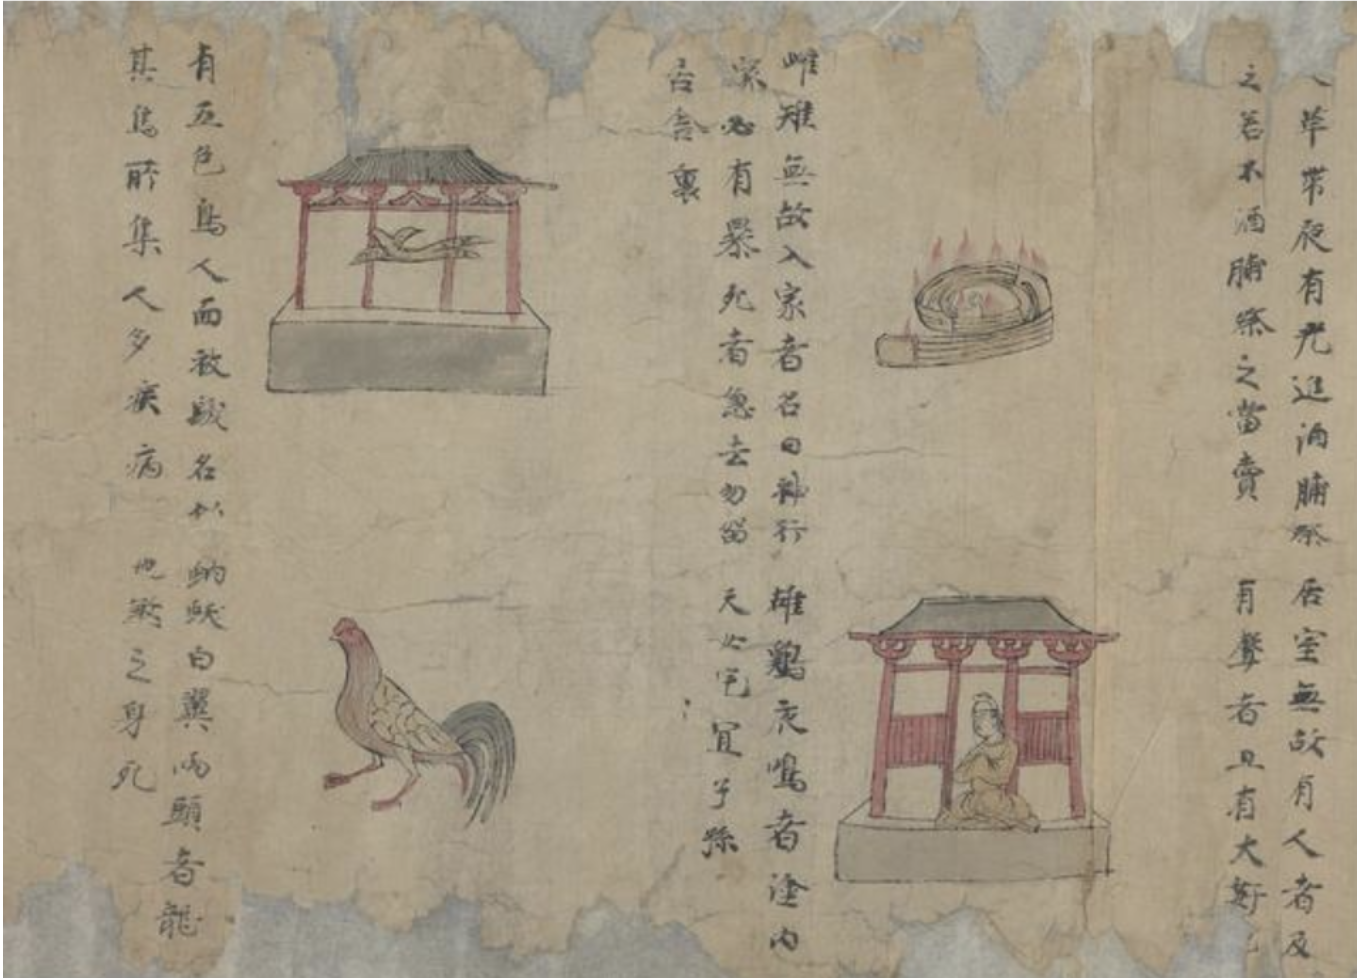 革帶夜有光進酒脯祭
之若不酒脯祭之當賣
居室無故有人者及
有聲者且有大好
雌雉無故入家者名曰神行
家必有暴死者急去勿留
居舍裏
雄鷄夜鳴者塗內
天必宅宜子孫
有五色鳥人面被髮名
其鳥所集人多疾病
白翼兩頭者龍
也煞之身死